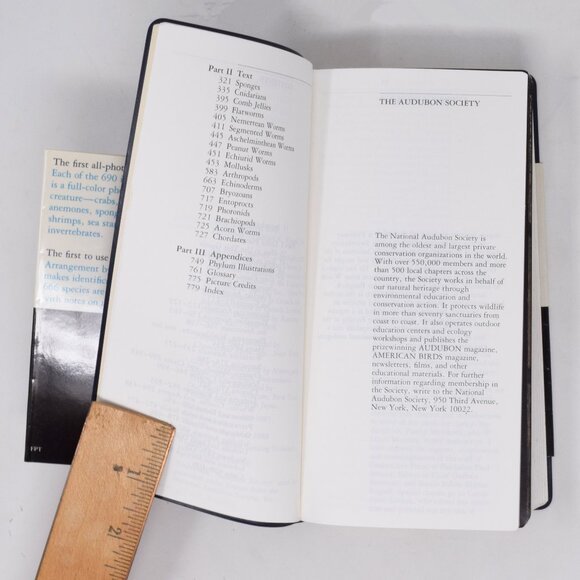 The first all-phot
Each of the 690
is a full-color ph
creature—crabs,
anemones, spong
shrimps, sea sta
invertebrates.
The first to use
Arrangement by
makes identific
666 species are
with notes on
FPT
Part II Text
321 Sponges
335 Cnidarians
395 Comb Jellies
399 Flatworms
405 Nemertean Worms
411 Segmented Worms
445 Aschelminthean Worms
447 Peanut Worms
451 Echiurid Worms
453 Mollusks
583 Arthropods
663 Echinoderms
707 Bryozoans
717 Entoprocts
719 Phoronids
721 Brachiopods
725 Acorn Worms
727 Chordates
Part III Appendices
749 Phylum Illustrations
761 Glossary
775 Picture Credits
779 Index
THE AUDUBON SOCIETY
The National Audubon Society is
among the oldest and largest private
conservation organizations in the world.
With over 550,000 members and more
than 500 local chapters across the
country, the Society works in behalf of
our natural heritage through
environmental education and
conservation action. It protects wildlife
in more than seventy sanctuaries from
coast to coast. It also operates outdoor
education centers and ecology
workshops and publishes the
prizewinning AUDUBON magazine,
AMERICAN BIRDS magazine,
newsletters, films, and other
educational materials. For further
information regarding membership in
the Society, write to the National
Audubon Society, 950 Third Avenue,
New York, New York 10022.
1
2